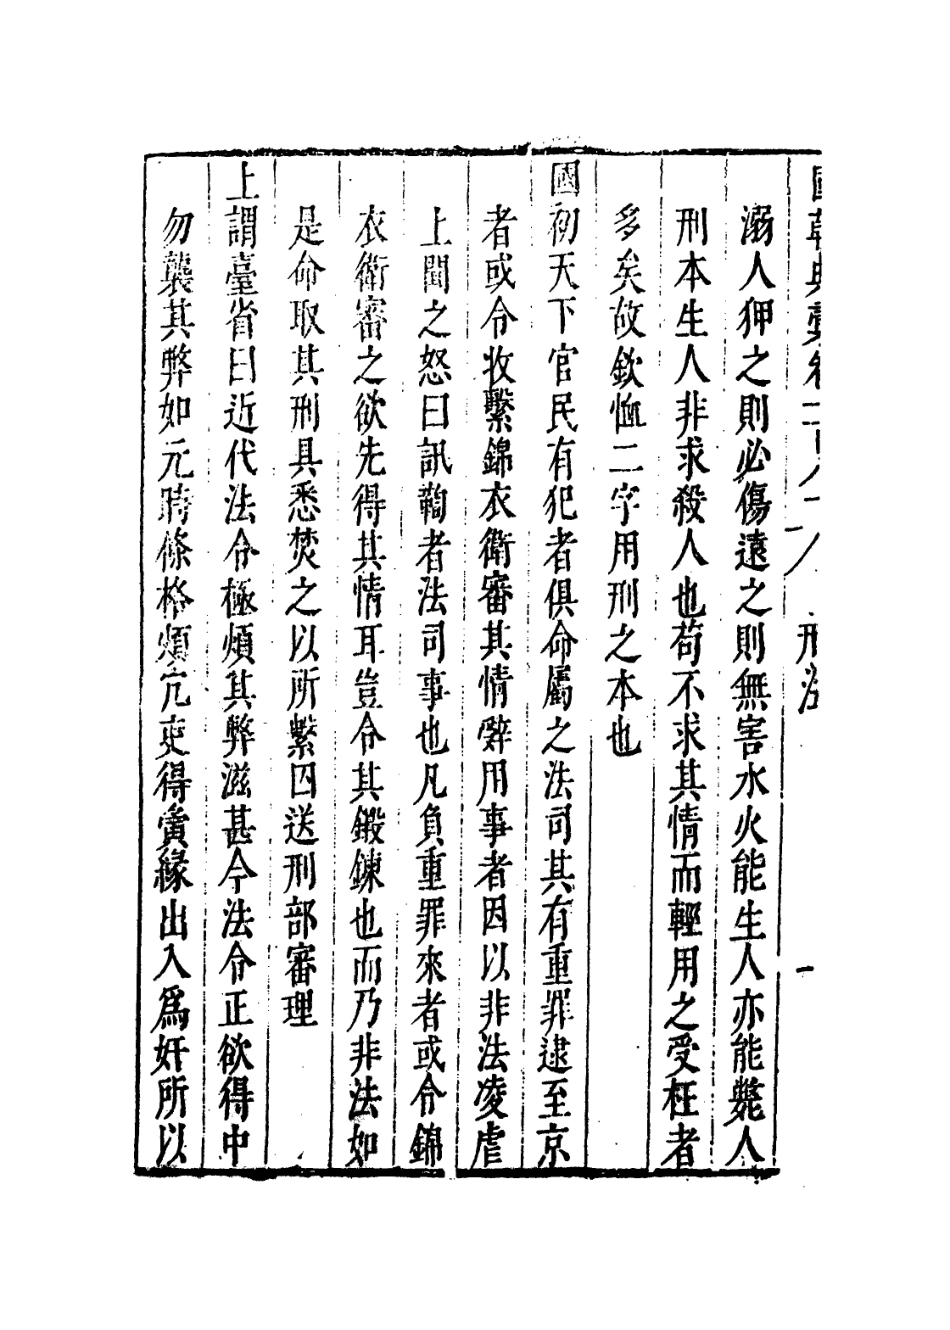 國朝典彙卷一百八十八 刑法 一
溺人狎之則必傷遠之則無害水火能生人亦能斃人
刑本生人非求殺人也苟不求其情而輕用之受枉者
多矣故欽恤二字用刑之本也
國初天下官民有犯者俱命屬之法司其有重罪逮至京
者或令收繫錦衣衛審其情辭用事者因以非法凌虐
上聞之怒曰訊鞫者法司事也凡負重罪來者或令錦
衣衛審之欲先得其情耳豈令其鍛鍊也而乃非法如
是命取其刑具悉焚之以所繫囚送刑部審理
上謂臺省曰近代法令極煩其弊滋甚今法令正欲得中
勿襲其弊如元時條格煩宂吏得夤緣出入爲奸所以